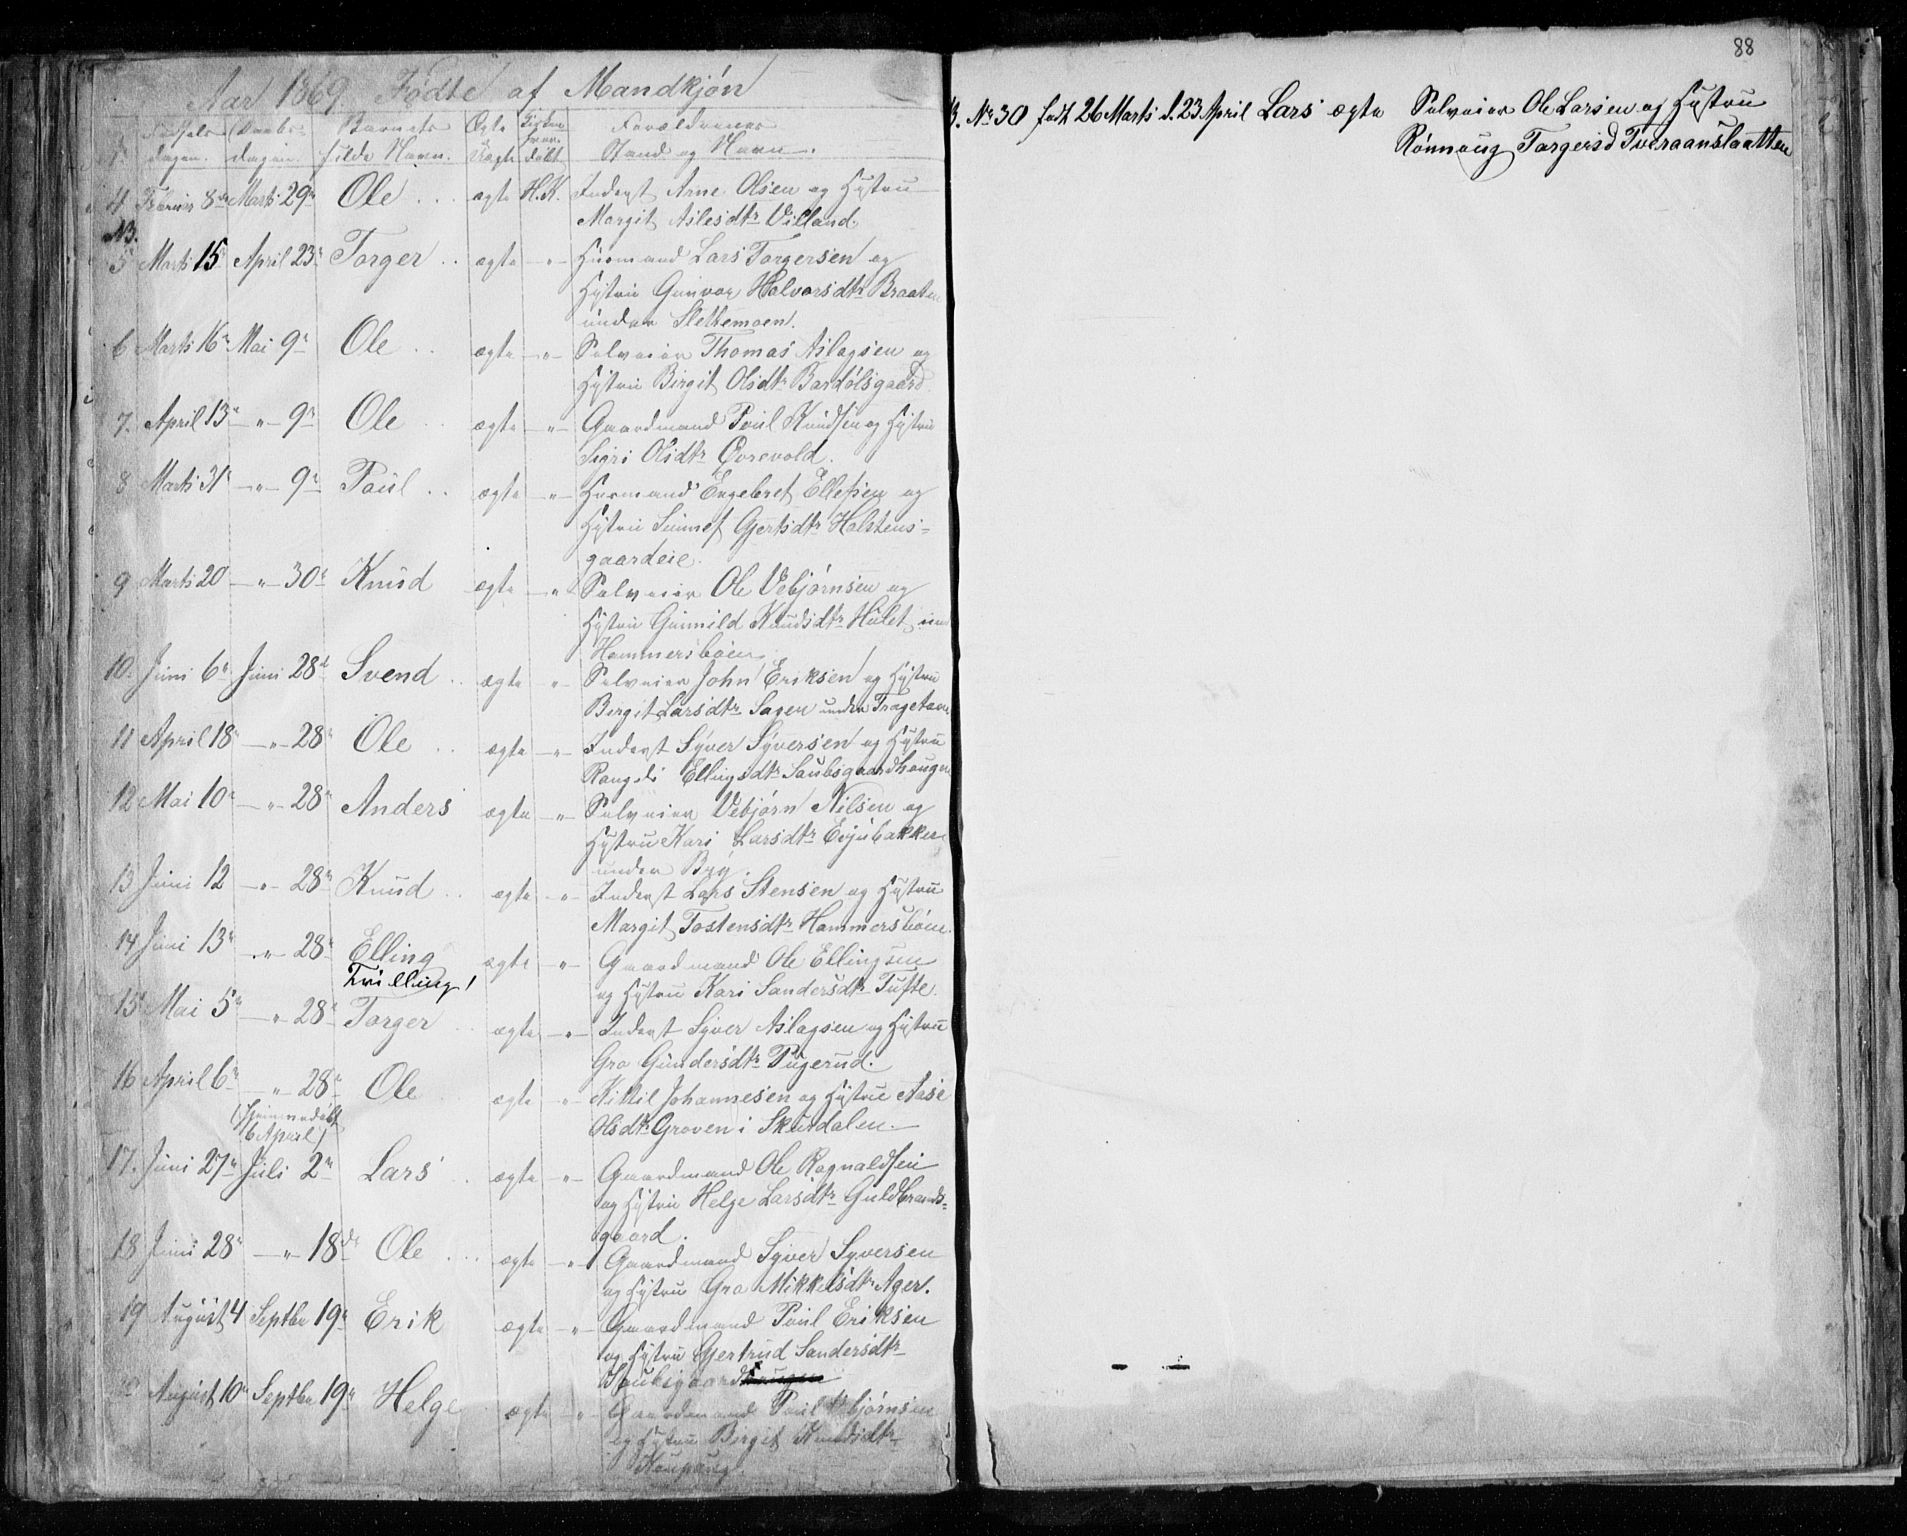 Aar 1869. Fødte af Mandkjøn
Fødsels Daabs- Barnets Ægte Forældrenes
dagen. dagen. fulde Navn. Uægte døbt. Stand og Navn.
4 Februar 8de Marts 29n Ole ægte H.K. Inderst Arne Olsen og Hustru
Margit Aslesdtr Villand.
NB.
5 Marts 15 April 23n Torger ægte -"- Husmand Lars Torgersen og
Hustru Gunvor Halvorsdtr Braaten
under Slettemoen.
6 Marts 16n Mai 9n Ole ægte -"- Selveier Thomas Aslagsen og
Hustru Birgit Olsdtr Bardølsgaard
7. April 13n -"- 9n Ole ægte -"- Gaardmand Poul Knudsen og Hustru
Sigri Olsdtr Øvrevold.
8 Marts 31n -"- 9n Poul ægte -"- Husmand Engebret Ellefsen og
Hustru Sünnef Gjertsdtr Halstens-
gaardeie.
9 Marts 20 -"- 30n Knud ægte -"- Selveier Ole Vebjørnsen og
Hustru Gunnild Knudsdtr Hulet
Hammersbøen
10. Juni 6n Juni 28d Svend ægte " Selveier John Eriksen og Hustru
Birgit Larsdtr Sagen under Trøgetan
11 April 18n -"- 28n Ole ægte -"- Inderst Syver Syversen og Hustru
Rangdi Ellingsdtr Saubsgaardhaugn
12 Mai 10n -"- 28n Anders ægte -"- Selveier Vebjørn Nilsen og
Hustru Kari Larsdtr Evjubakken
under Byg.
13 Juni 12 -"- 28n Knud ægte -"- Inderst Lars Stensen og Hustru
Margit Tostensdtr Hammersbøen.
14 Juni 13n -"- 28n Elling ægte -"- Gaardmand Ole Ellingsen
Tvilling! og Hustru Kari Sandersdtr Tufte.
15 Mai 5n -"- 28n Torger ægte -"- Inderst Syver Aslagsen og Hustru
Gro Gundersdtr Pugerud.
16 April 6n -"- 28n Ole ægte " Kittil Johannesen og Hustru Aase
(Hjemmedøbt Olsdtr Groven i Skurdalen.
16 April)
17. Juni 27n Juli 2n Lars ægte -"- Gaardmand Ole Ragnaldsen
og Hustru Helge Larsdtr Guldbrands-
gaard.
18 Juni 28n -"- 18de Ole ægte -"- Gaardmand Syver Syversen
og Hustru Gro Mikkelsdtr Ager.
19 August 4 Septbr 19n Erik ægte -"- Gaardmand Poul Eriksen
og Hustru Gertrud Sandersdtr
Saubsgaard
August 10n Septbr 19n Helge ægte -"- Gaardmand Poul
og Hustru Birgit Knudsdtr
Kaupang.
88
No 30 født 26 Marts d. 23 April Lars ægte Selveier Ole Larsen og Hustru
Rønnoug Torgersd Tveraanslaatten